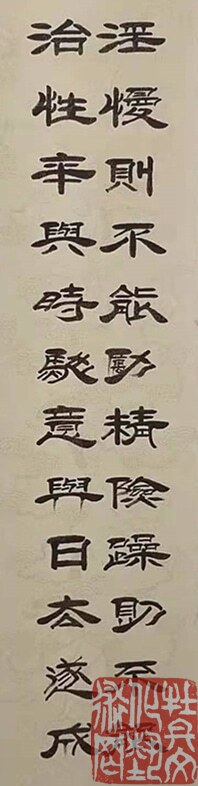 淫慢則不能勵精險躁則不能
治性年與時馳意與日去遂成